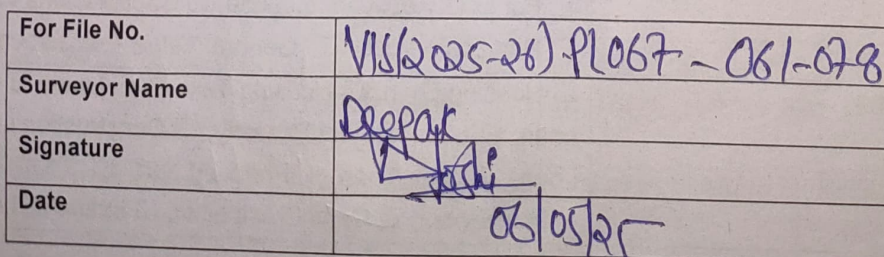 For File No. VIS(2025-26)-PL067-061-078
Surveyor Name Deepak
Signature Joshi
Date 06/05/25